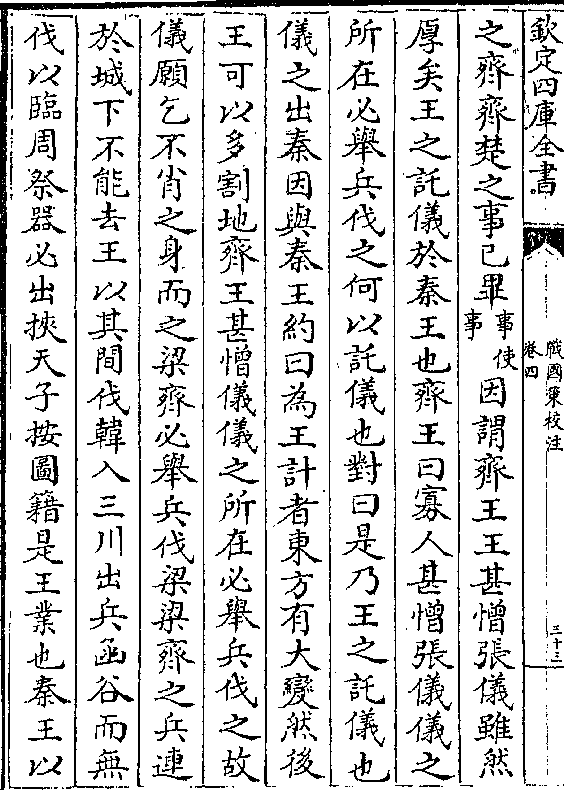 欽定四庫全書
戰國策校注
卷四
三十三
之齊齊楚之事已畢事使事因謂齊王王甚憎張儀雖然
厚矣王之託儀於秦王也齊王曰寡人甚憎張儀儀之
所在必舉兵伐之何以託儀也對曰是乃王之託儀也
儀之出秦因與秦王約曰為王計者東方有大變然後
王可以多割地齊王甚憎儀儀之所在必舉兵伐之故
儀願乞不肖之身而之梁齊必舉兵伐梁梁齊之兵連
於城下不能去王以其間伐韓入三川出兵函谷而無
伐以臨周祭器必出挾天子按圖籍是王業也秦王以